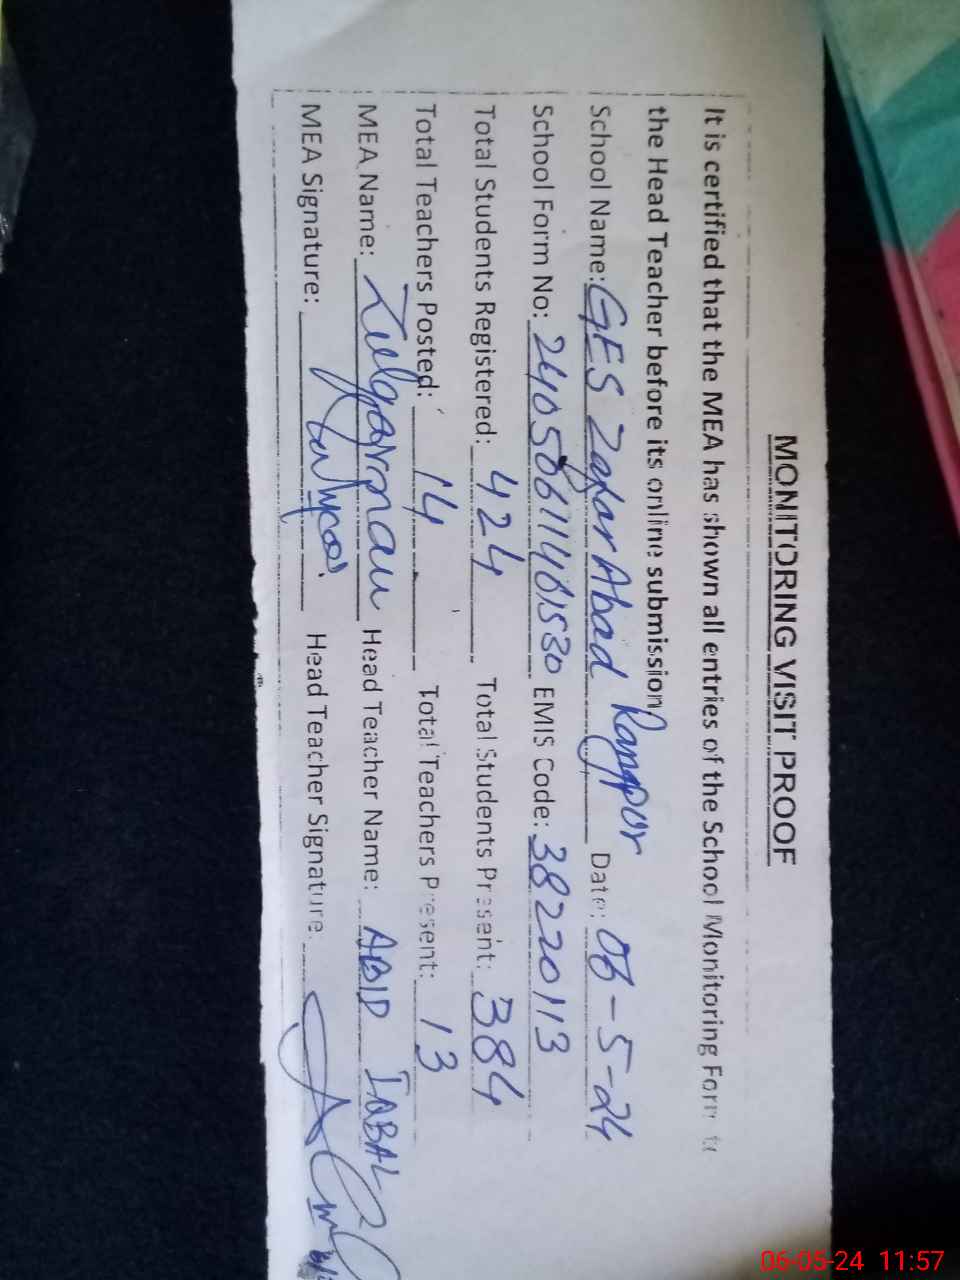 MONITORING VISIT PROOF
It is certified that the MEA has shown all entries of the School Monitoring Form to
the Head Teacher before its online submission
School Name: GES Zafar Abad Rangpur Date: 06-5-24
School Form No: EMIS Code: 38220113
Total Students Registered: 424 Total Students Present: 384
Total Teachers Posted: 14 Total Teachers Present: 13
MEA Name: Head Teacher Name: ABID IQBAL
MEA Signature: Head Teacher Signature:
06-05-24 11:57